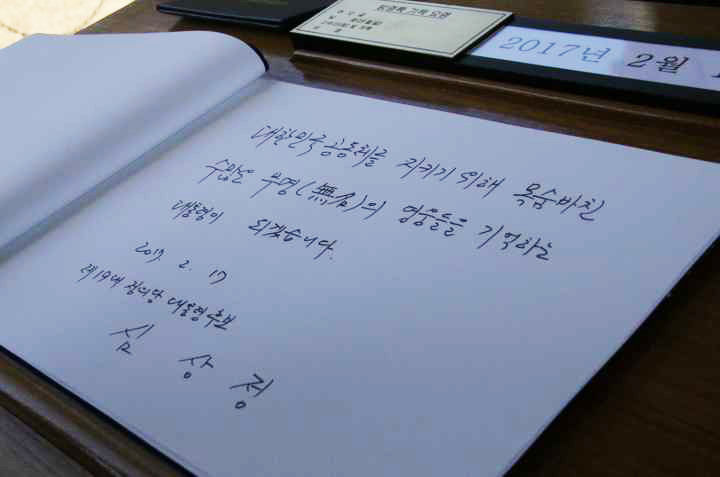 방명록 기록 요령
2017년 2월 1
대한민국 공동체를 지키기 위해 목숨바친
수많은 무명(無名)의 영웅들을 기억하는
대통령이 되겠습니다.
2017. 2. 17
제19대 정의당 대통령후보
심 상 정